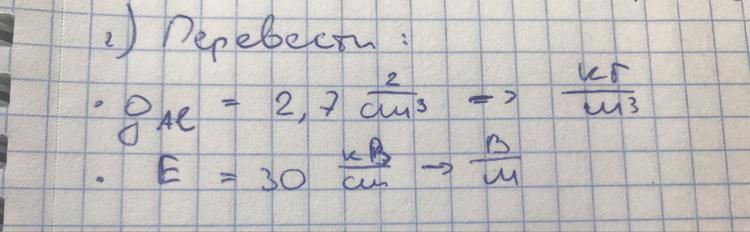 2) Перевести:
· ρ_Al = 2,7 г/см³ => кг/м³
· E = 30 кВ/см → В/м